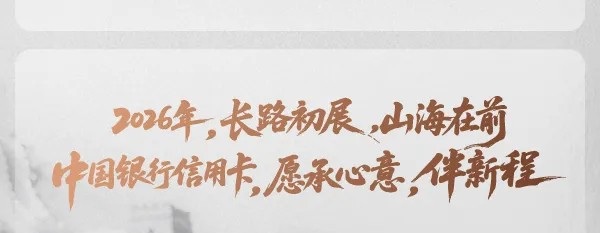 2026年,长路初展,山海在前
中国银行信用卡,愿承心意,伴新程